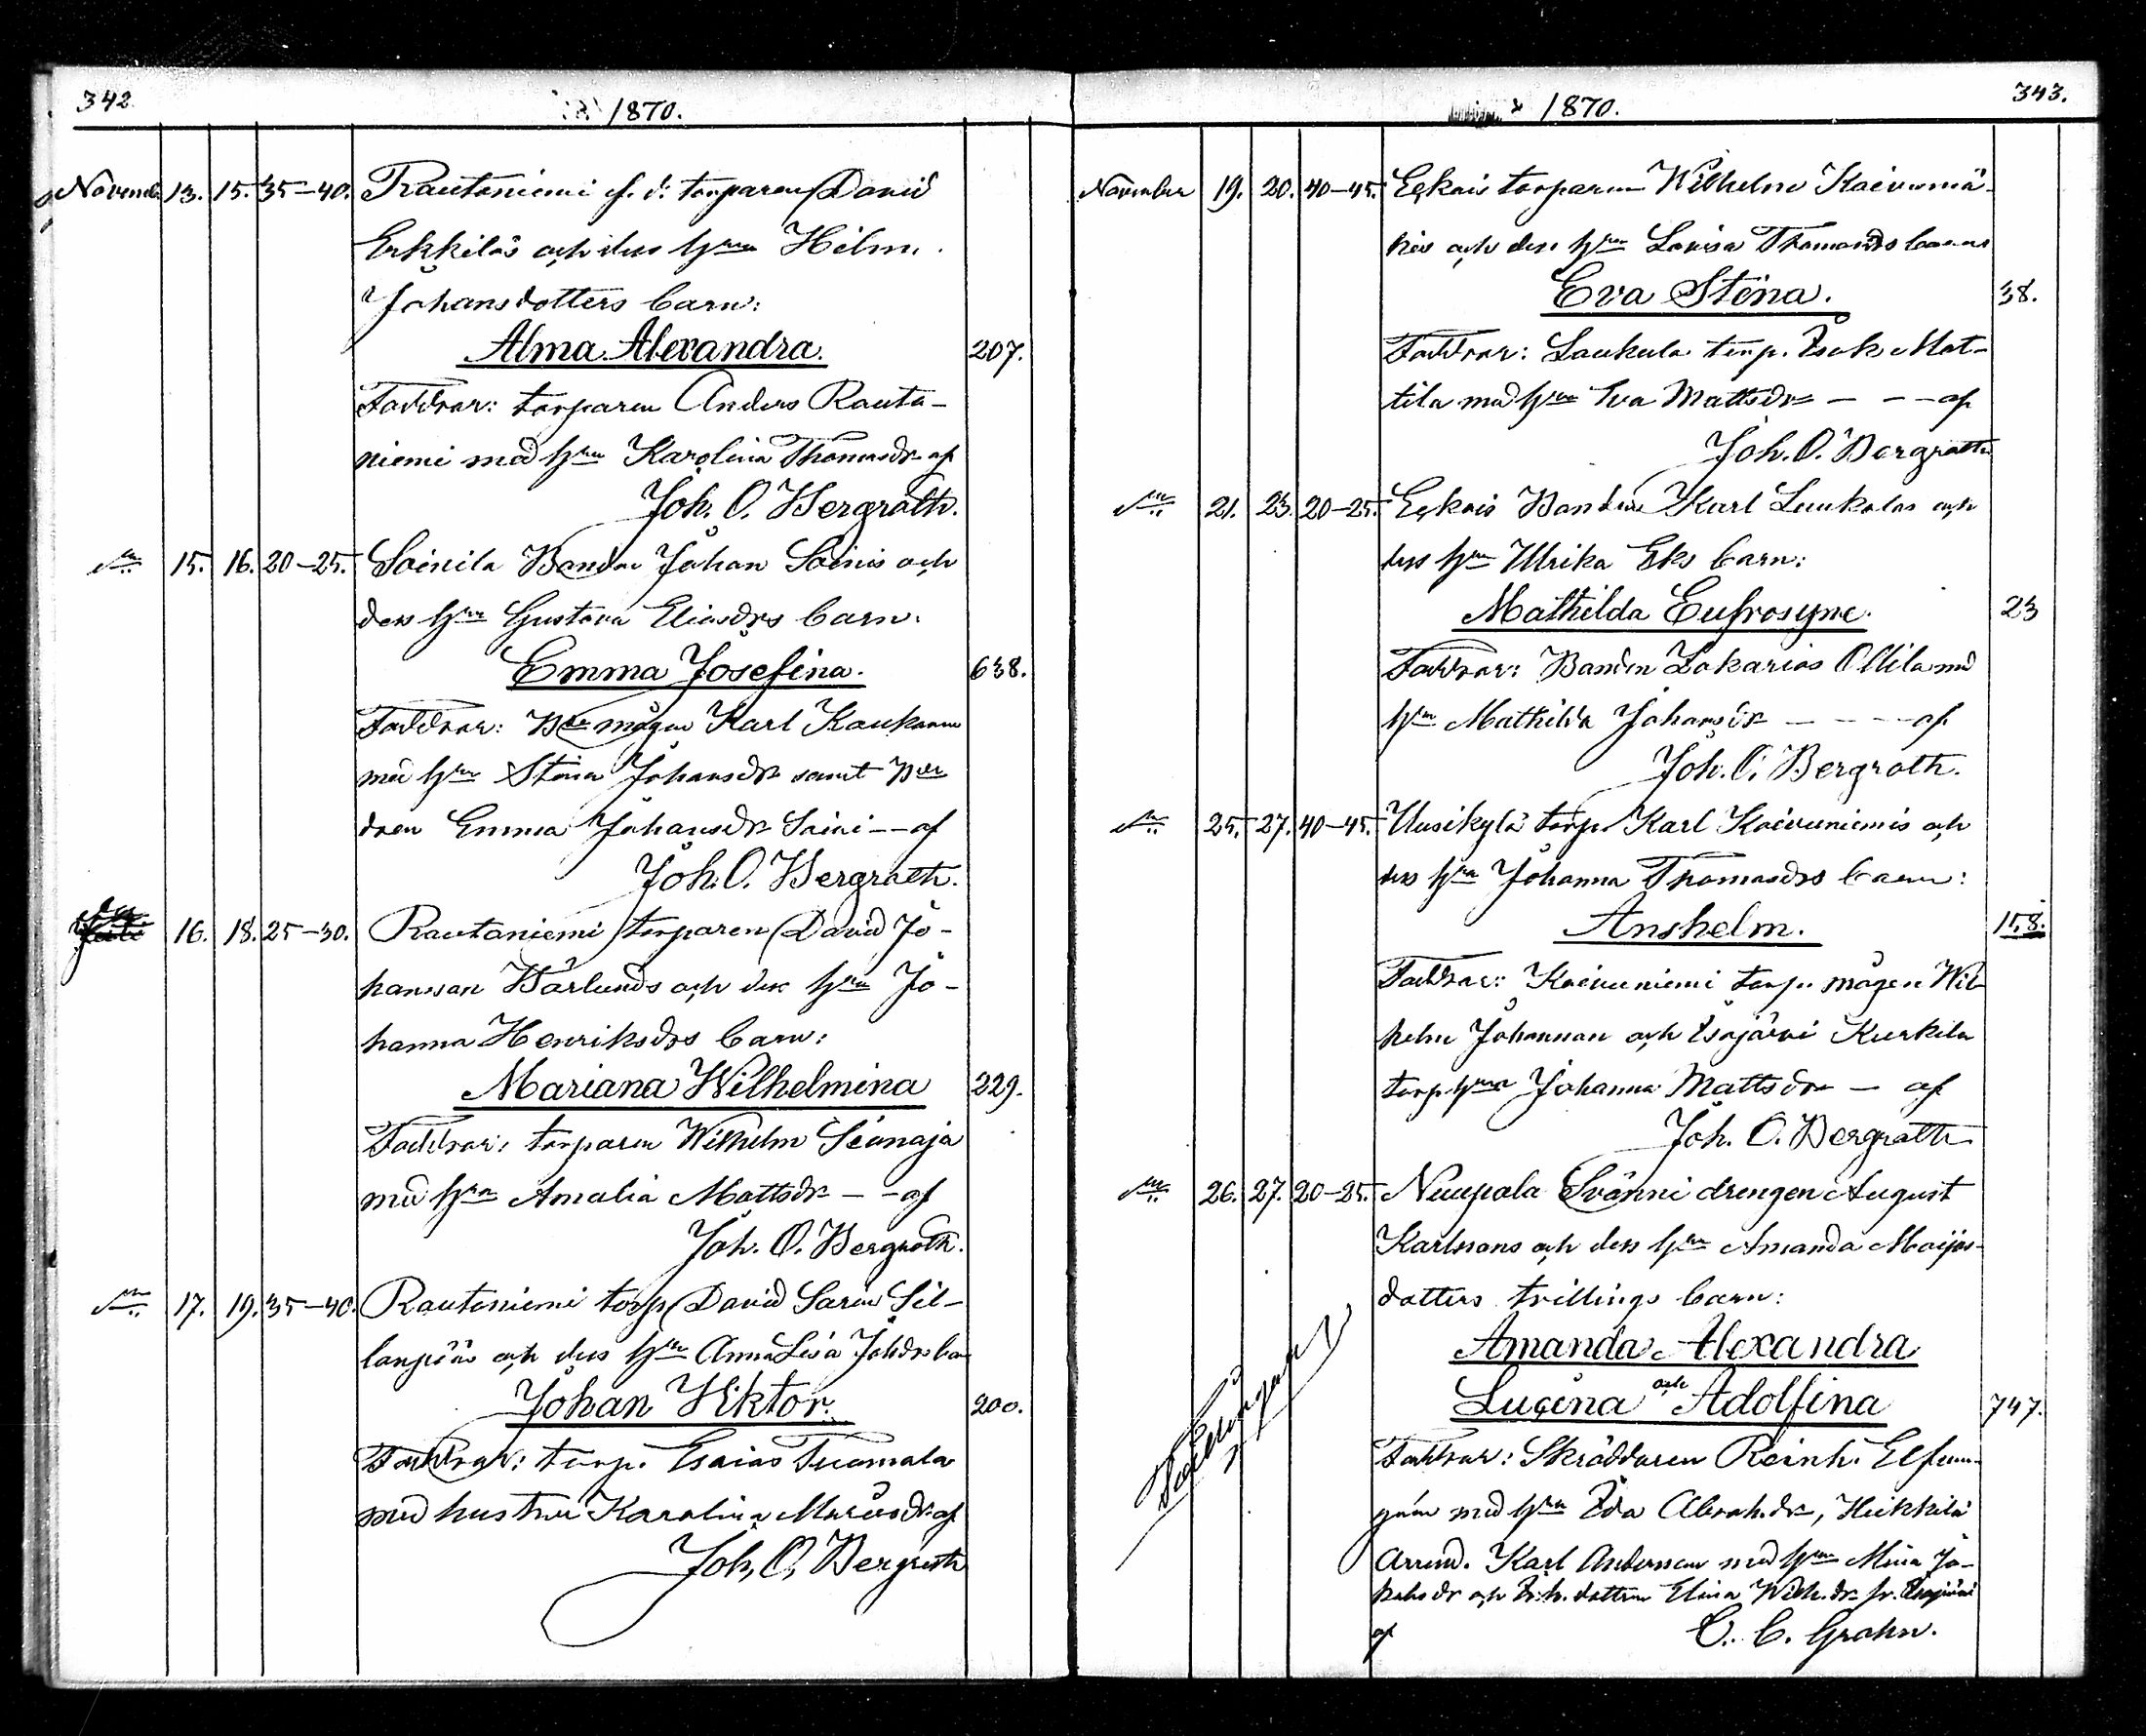 342.
1870.
Novemb. 13. 15. 35–40. Rautaniemi f. d. torparen David
Erkkiläs och dess hru Helm.
Johansdotters barn:
Alma Alexandra. 207.
Faddrar: torparen Anders Rauta-
niemi med hru Karolina Thomasdr af
Joh. O. Bergroth.
15. 16. 20–25. Soinila Bonden Johan Soinis och
dess hru Gustava Eliasdrs barn:
Emma Josefina. 638.
Faddrar: mågen Karl Kaukonen
med hru Stina Johansdr samt
Emma Johansdr Soini – – af
Joh. O. Bergroth.
16. 18. 25–30. Rautaniemi torparen David Jo-
hansson Bärlunds och dess hru Jo-
hanna Henriksdrs barn:
Mariana Wilhelmina 229.
Faddrar: torparen Wilhelm
med hru Amalia Mattsdr – – af
Joh. O. Bergroth.
17. 19. 35–40. Rautaniemi torp. David Saren Sil-
lanpääs och dess hru Anna Lisa Johdrs ba
Johan Viktor. 200.
Faddrar: torp. Esaias Tuomala
med hustru Karolina af
Joh. O. Bergroth
343.
1870.
November 19. 20. 40–45. Eckois torparen Wilhelm Koivumä-
kis och dess hru Lovisa Thomasdrs barns
Eva Stina. 38.
Faddrar: Laukula torp. Isak Mat-
tila med hru Eva Mattsdr – – – af
Joh. O. Bergroth
21. 23. 20–25. Eckois Bonden Karl Laukolas och
dess hru Ulrika Eks barn:
Mathilda Eufrosyne. 23
Faddrar: Bonden Zakarias Ollila med
hru Mathilda Johansdr – – – – af
Joh. O. Bergroth.
25. 27. 40–45. Uusikylä torp. Karl Koivuniemis och
dess hru Johanna Thomasdrs barn:
Anshelm. 158.
Faddrar: Koivuniemi torp. mågen Wil-
helm Johansson och Isojärvi Kurkela
torp. hrun Johanna Mattsdr – af
Joh. O. Bergroth
26. 27. 20–25. Nuupala Svänni drengen August
Karlssons och dess hru Amanda Maijas-
dotters trillings barn:
Amanda Alexandra
Lucina och Adolfina 747.
Faddrar: Skräddaren Reinh.
med hru Ida Abrah.dr, Heikkilä
Arrend. Karl Andersson med hru Mina Ja-
kobsdr och dottren Elina Wilh.dr fr. Isojärvi
af C. C. Grahn.